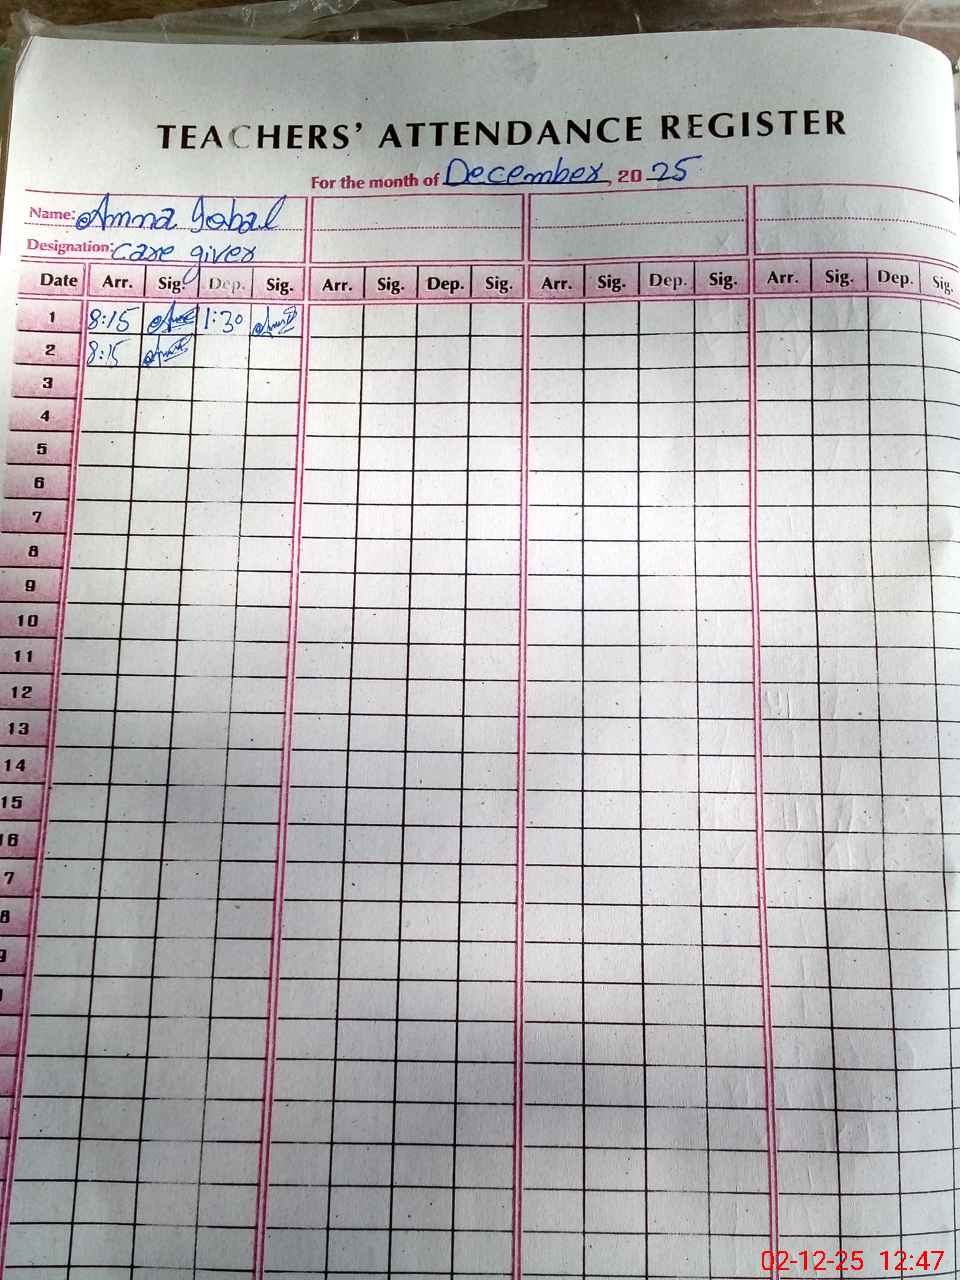 TEACHERS' ATTENDANCE REGISTER
For the month of December, 20 25
Name: Amna Iqbal
Designation: Care giver
Date Arr. Sig. Dep. Sig. Arr. Sig. Dep. Sig. Arr. Sig. Dep. Sig. Arr. Sig. Dep. Sig.
1 8:15 1:30
2 8:15
3
4
5
6
7
8
9
10
11
12
13
14
15
16
7
8
9
02-12-25 12:47